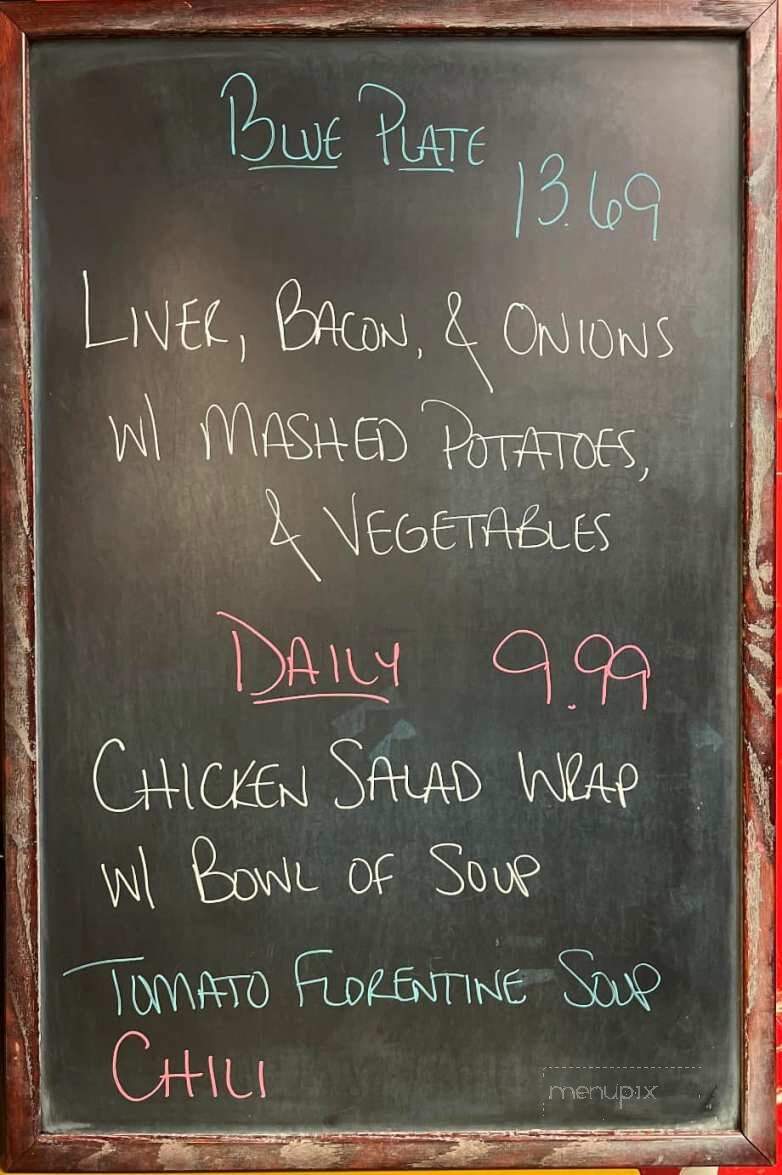 BLUE PLATE
13.69
LIVER, BACON, & ONIONS
W/ MASHED POTATOES,
& VEGETABLES
DAILY 9.99
CHICKEN SALAD WRAP
W/ BOWL OF SOUP
TOMATO FLORENTINE SOUP
CHILI
menupix